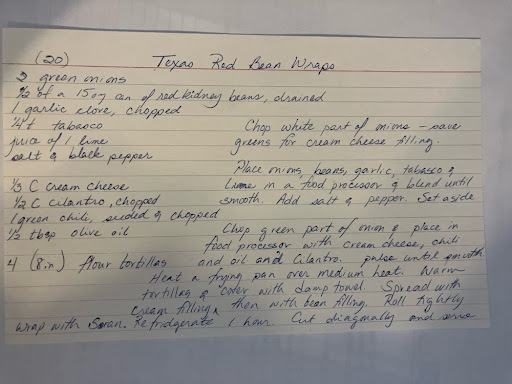 (20) Texas Red Bean Wraps
2 green onions
1/2 of a 15 oz can of red kidney beans, drained
1 garlic clove, chopped
1/4 t tabasco
juice of 1 lime
salt & black pepper
1/3 C Cream Cheese
1/2 C Cilantro, chopped
1 green chili, seeded & chopped
1/2 tbsp olive oil
4 (8 in) flour tortillas
Chop white part of onions - save
greens for cream cheese filling.
Place onions, beans, garlic, tabasco &
lime in a food processor & blend until
smooth. Add salt & pepper. Set aside
Chop green part of onion & place in
food processor with cream cheese, chili
and oil and Cilantro. pulse until smooth
Heat a frying pan over medium heat. Warm
tortillas & cover with damp towel. Spread with
cream filling, then with bean filling. Roll tightly
wrap with Saran. Refridgerate 1 hour. Cut diagonally and serve